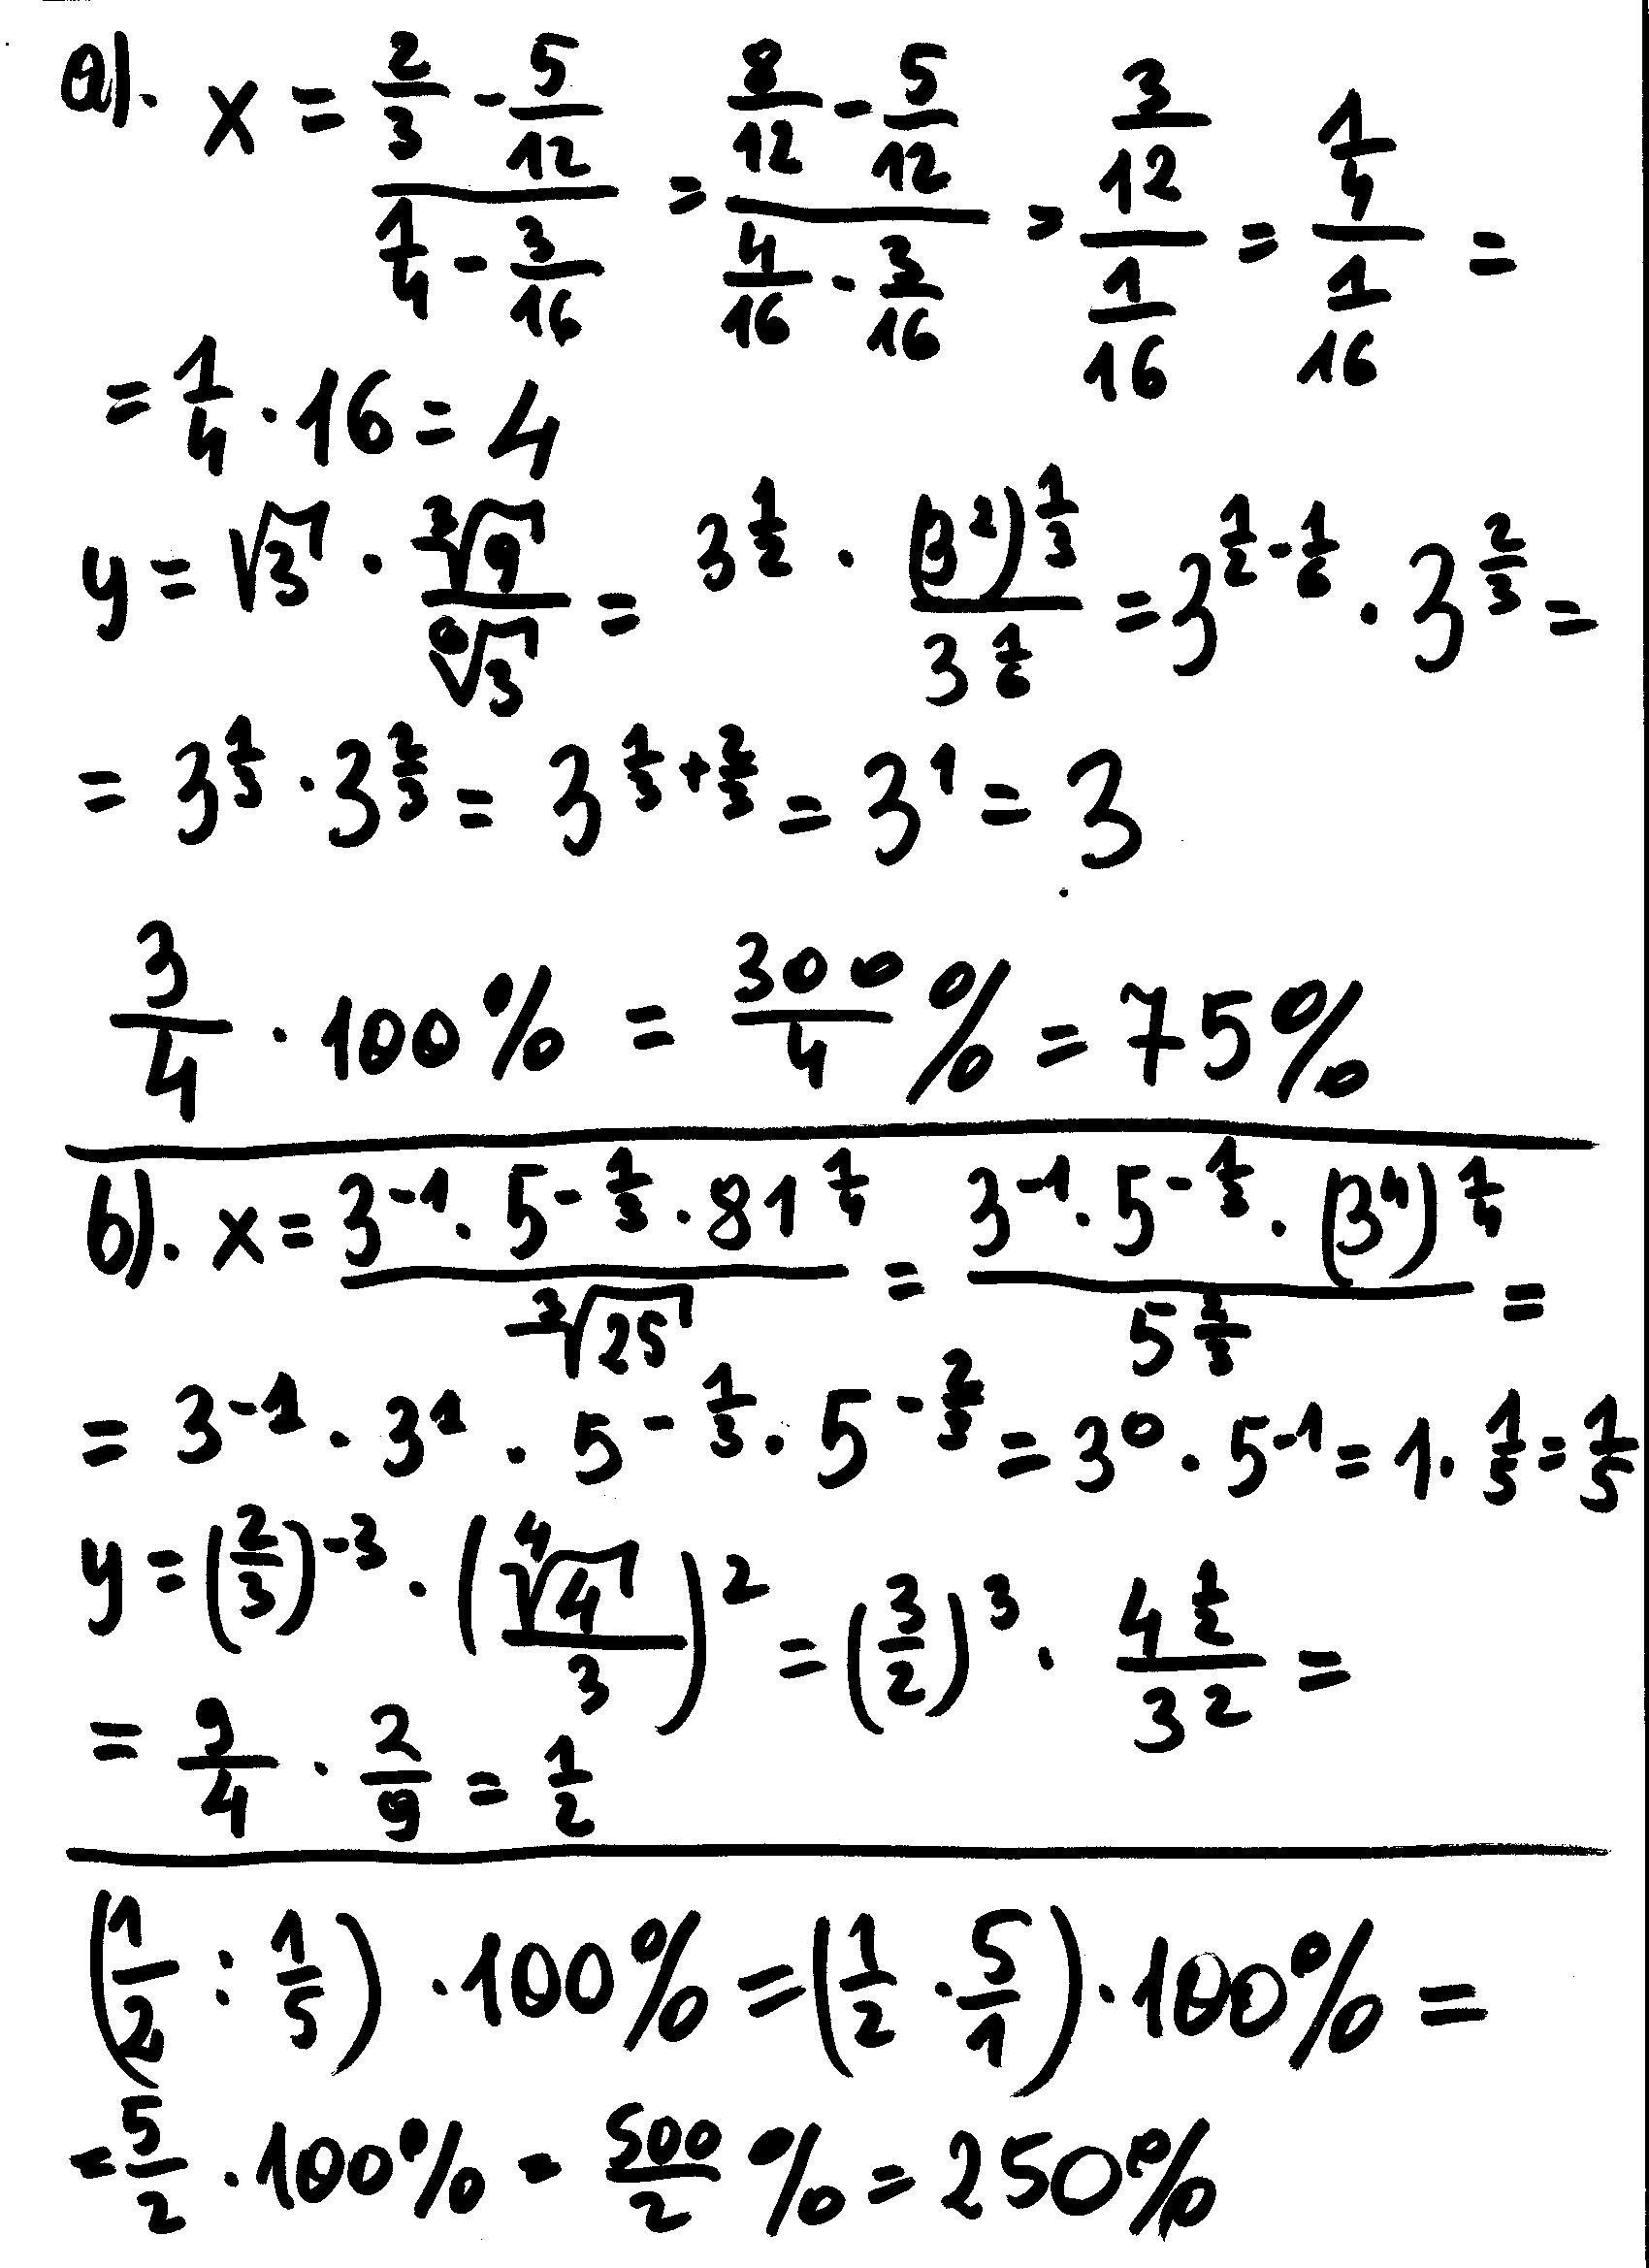 a). x = (2/3 - 5/12)/(1/4 - 3/16) = (8/12 - 5/12)/(4/16 - 3/16) = (3/12)/(1/16) = (1/4)/(1/16) =
= 1/4 · 16 = 4
y = √3 · ∛9/⁶√3 = 3^(1/2) · (3²)^(1/3)/3^(1/6) = 3^(1/2 - 1/6) · 3^(2/3) =
= 3^(1/3) · 3^(2/3) = 3^(1/3 + 2/3) = 3¹ = 3
3/4 · 100% = 300/4 % = 75%
b). x = (3⁻¹ · 5^(-1/3) · 81^(1/4))/∛25 = (3⁻¹ · 5^(-1/3) · (3⁴)^(1/4))/5^(2/3) =
= 3⁻¹ · 3¹ · 5^(-1/3) · 5^(-2/3) = 3⁰ · 5⁻¹ = 1 · 1/5 = 1/5
y = (2/3)⁻³ · (⁴√4/3)² = (3/2)³ · 4^(1/2)/3² =
= 9/4 · 2/9 = 1/2
(1/2 : 1/5) · 100% = (1/2 · 5/1) · 100% =
= 5/2 · 100% = 500/2 % = 250%